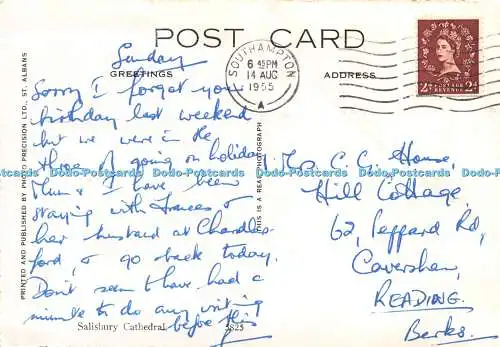 POST CARD
GREETINGS
ADDRESS
SOUTHAMPTON
6 45 PM
14 AUG
1955
A
POSTAGE
REVENUE
Sunday
Sorry I forgot your
birthday last weekend
but we were in the
throes of going on holiday
Mum & I have been
staying with Frances &
her husband at Chandlers
ford, & go back today.
Don't seem to have had a
minute to do any writing
before this
Salisbury Cathedral
PRINTED AND PUBLISHED BY PHOTO PRECISION LTD., ST. ALBANS
THIS IS A REAL PHOTOGRAPH
Mrs C. C. House,
Hill Cottage,
62, Peppard Rd,
Caversham,
READING.
Berks.
Dodo-Postcards Dodo-Postcards Dodo-Postcards Dodo-Postcards